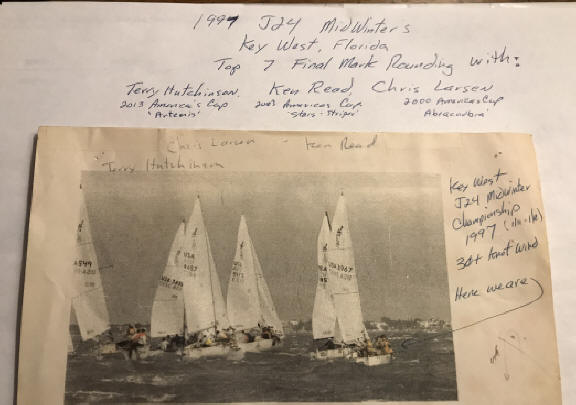 1997 J24 MidWinters
Key West, Florida
Top 7 Final Mark Rounding with:
Terry Hutchinson, Ken Read, Chris Larsen
2013 America's Cup 2003 Americas Cup 2000 Americas Cup
"Artemis" "Stars + Stripes" Abracadabra"
Chris Larsen - Ken Read
Terry Hutchinson
Key West
J24 MidWinter
Championship
1997
30+ knot wind
Here we are
USA
USA